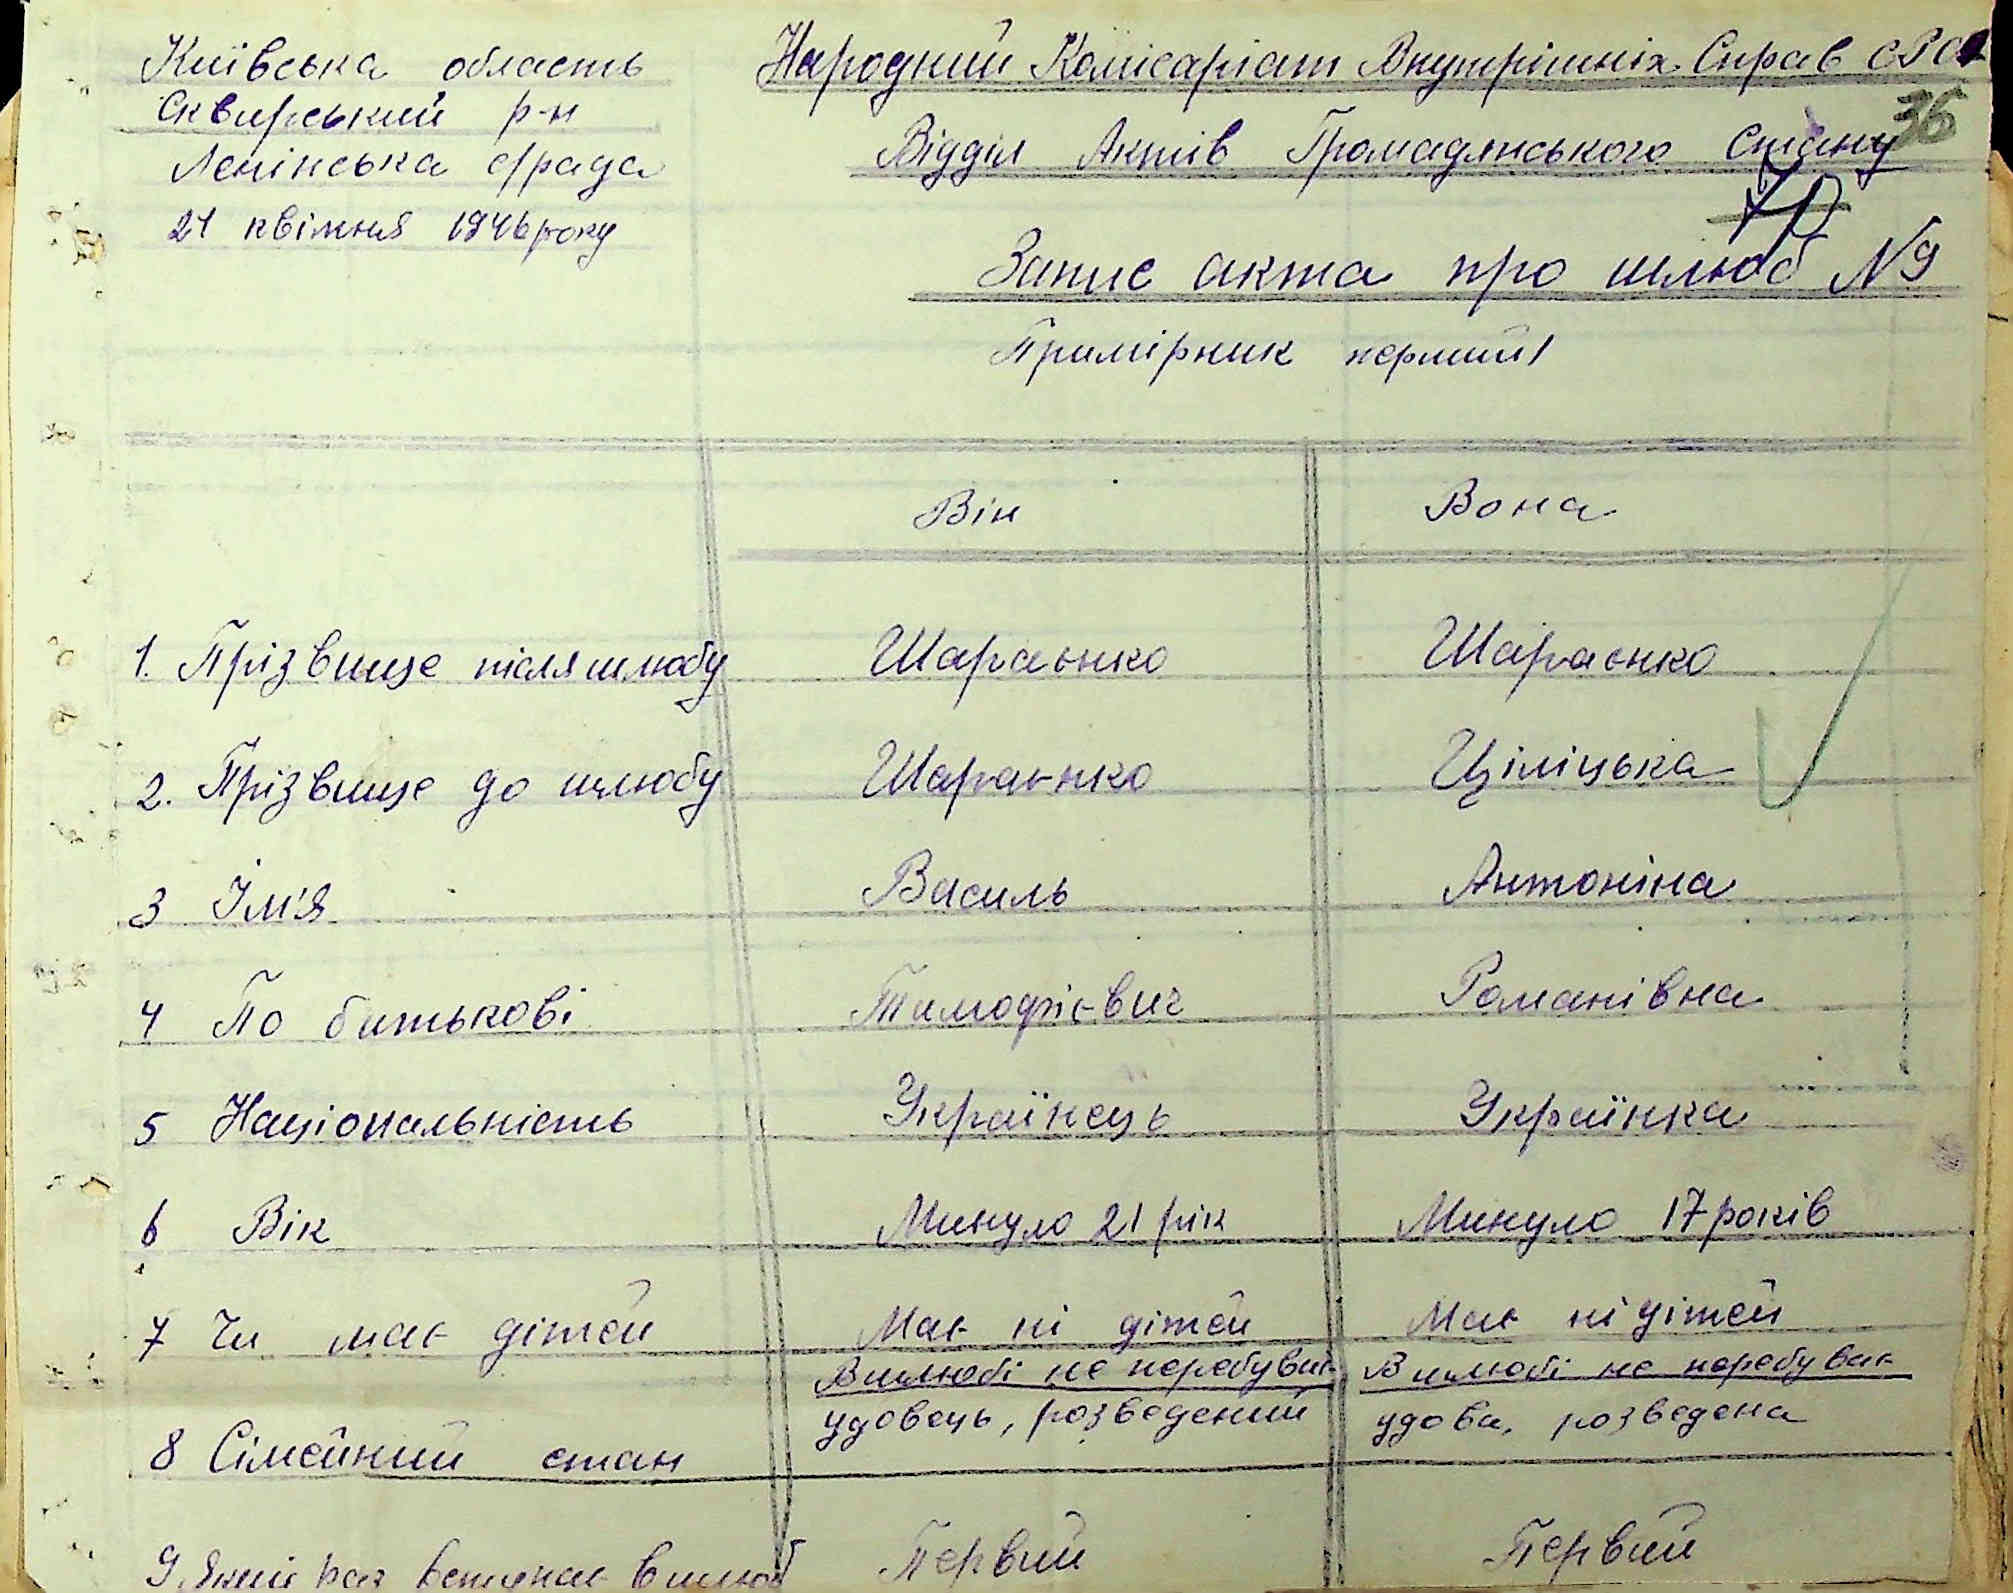 Київська область
Сквирський р-н
Ленінська с/рада
21 квітня 1946 року
Народний Комісаріат Внутрішніх Справ СРСР
36
Відділ Актів Громадянського Стану
Запис акта про шлюб №9
Примірник перший
Він Вона
1. Прізвище після шлюбу Шараєнко Шараєнко
2. Прізвище до шлюбу Шараєнко Ціліцька
3 Ім'я Василь Антоніна
4 По батькові Тимофієвич Романівна
5 Національність Українець Українка
6 Вік Минуло 21 рік Минуло 17 років
7 Чи має дітей Має ні дітей Має ні дітей
В шлюбі не перебуває В шлюбі не перебуває
8 Сімейний стан удовець, розведений удова, розведена
9. Який раз вступає в шлюб Первий Первий